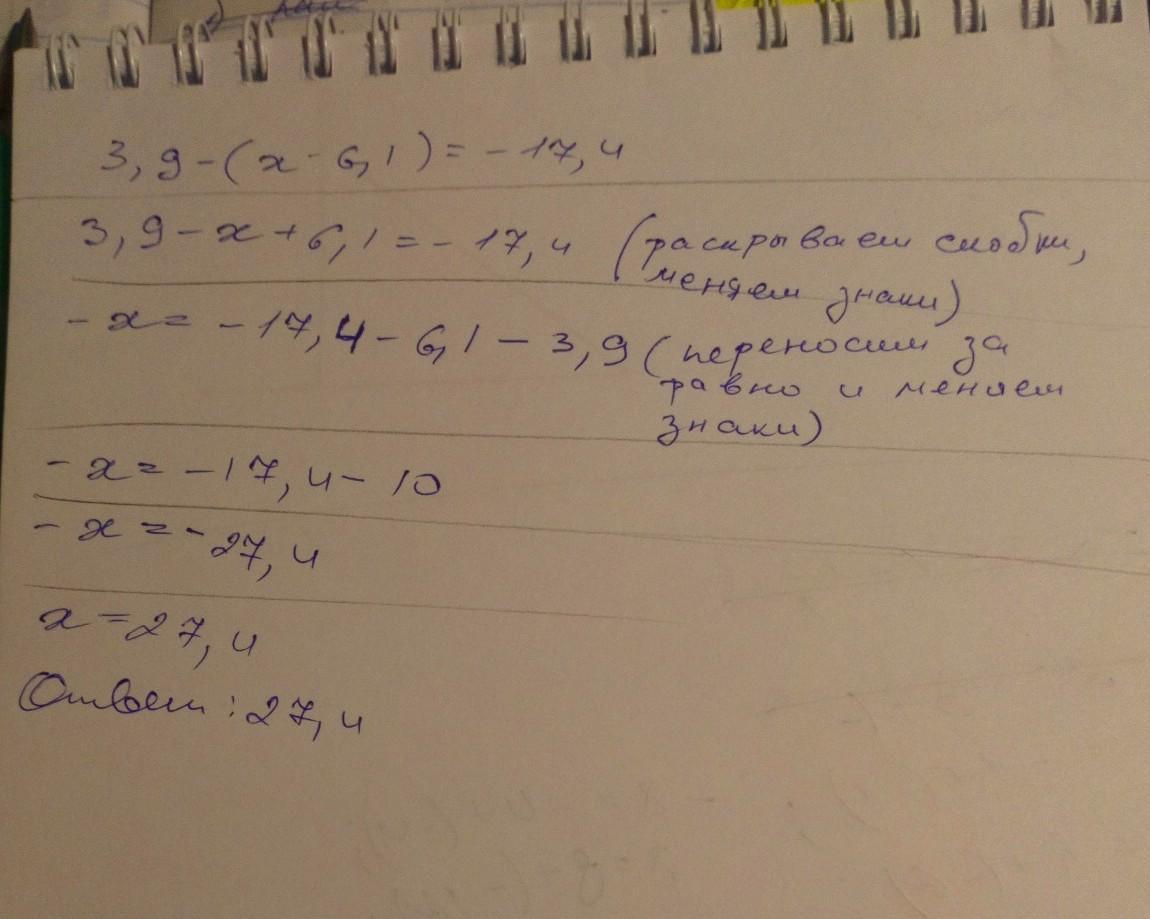 3,9-(x-6,1)=-17,4
3,9-x+6,1=-17,4 (раскрываем скобки,
меняем знаки)
-x=-17,4-6,1-3,9 (переносим за
равно и меняем
знаки)
-x=-17,4-10
-x=-27,4
x=27,4
Ответ:27,4